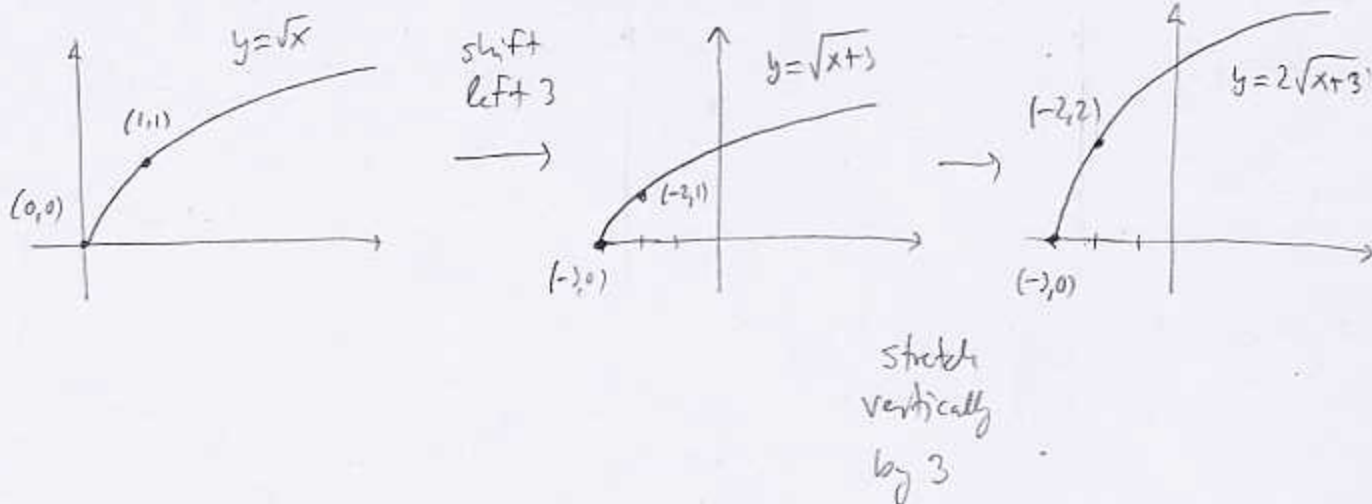 y=√x
(1,1)
(0,0)
shift
left 3
y=√x+3
(-2,1)
(-3,0)
y=2√x+3
(-2,2)
(-3,0)
stretch
vertically
by 3